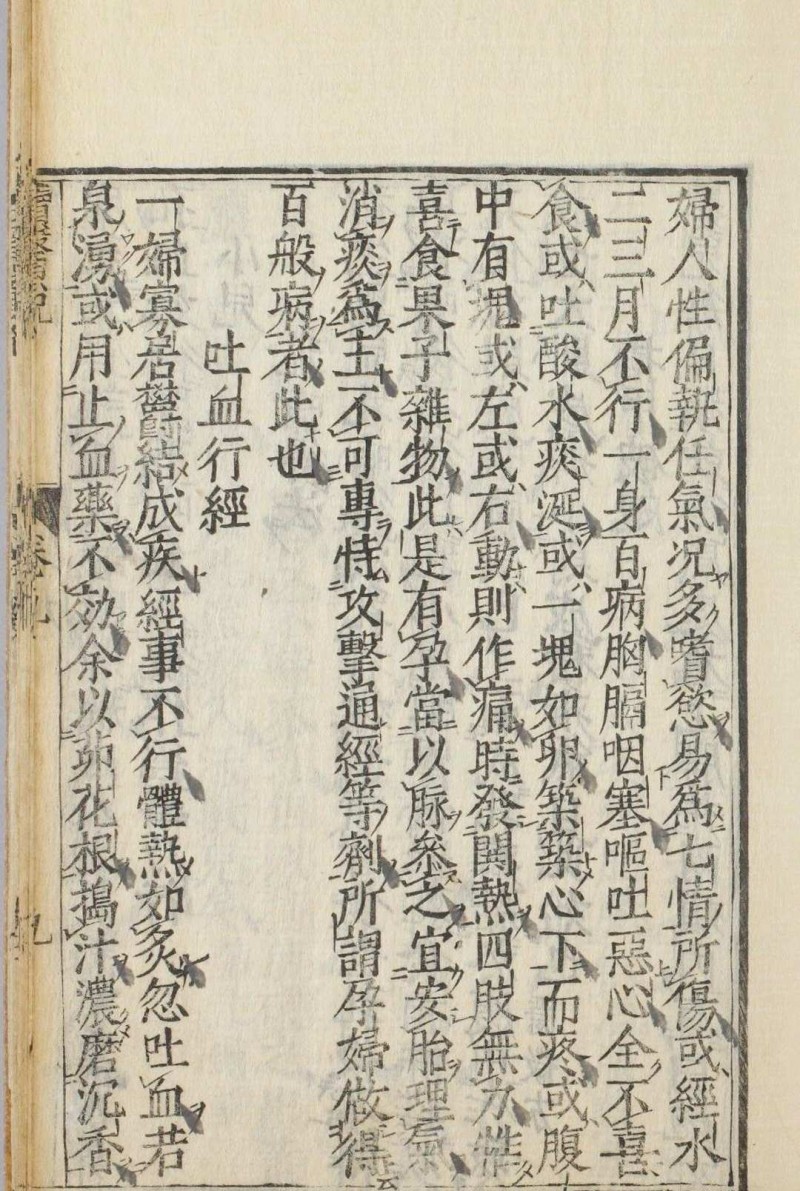 婦人性偏執任氣况多嗜慾易爲七情所傷或經水
二三月不行一身百病胸膈咽塞嘔吐惡心全不喜
食或吐酸水痰涎或一塊如卵築築心下而疼或腹
中有塊或左或右動則作痛時發関熱四肢無力惟
喜食果子雜物此是有孕當以脉叅之宜安胎理氣
消痰爲主不可專恃攻擊通經等劑所謂孕婦做得
百般病者此也
吐血行經
一婦寡居欝結成疾經事不行體熱如炙忽吐血若
泉湧或用止血藥不効余以茆花根搗汁濃磨沉香
卷九
九